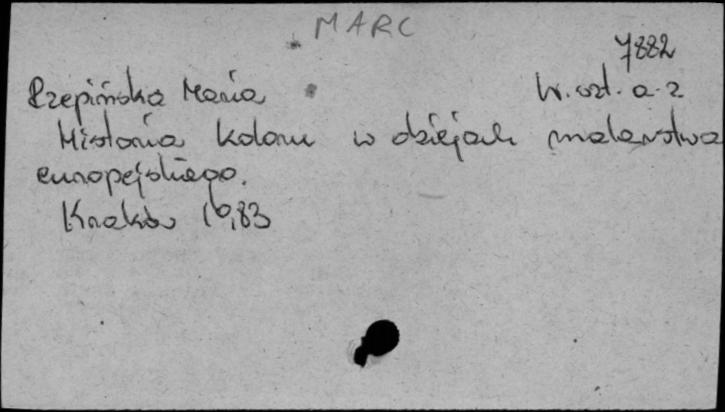 MARC
7882
Rzepińska Maria
Historia koloru w dziejach malarstwa
europejskiego.
Kraków 1983